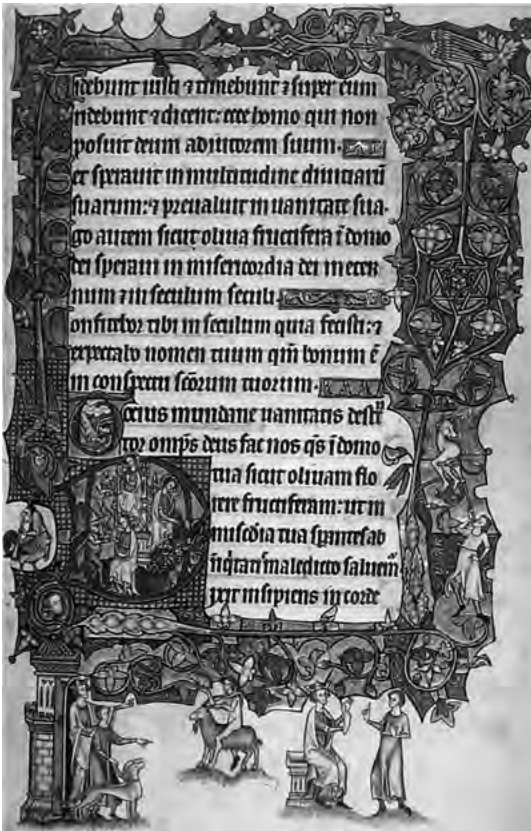 idebunt iusti ⁊ timebunt ⁊ super eum
ridebunt ⁊ dicent: ecce homo qui non
posuit deum adiutorem suum.
Set sperauit in multitudine diuitiarū
suarum: ⁊ preualuit in uanitate sua.
go autem sicut oliua fructifera ī domo
dei speraui in misericordia dei in eter
num ⁊ in seculum seculi.
onfitebor tibi in seculum quia fecisti: ⁊
expectabo nomen tuum qm̄ bonum ē
in conspectu sc̄orum tuorum.
mundane uanitatis
tor omp̄s deus fac nos q̄s ī domo
tua sicut oliuam flo
rere fructiferam: ut in
mis̄cdia tua sp̄antes ab
maledicto saluem̄
ixit insipiens in corde